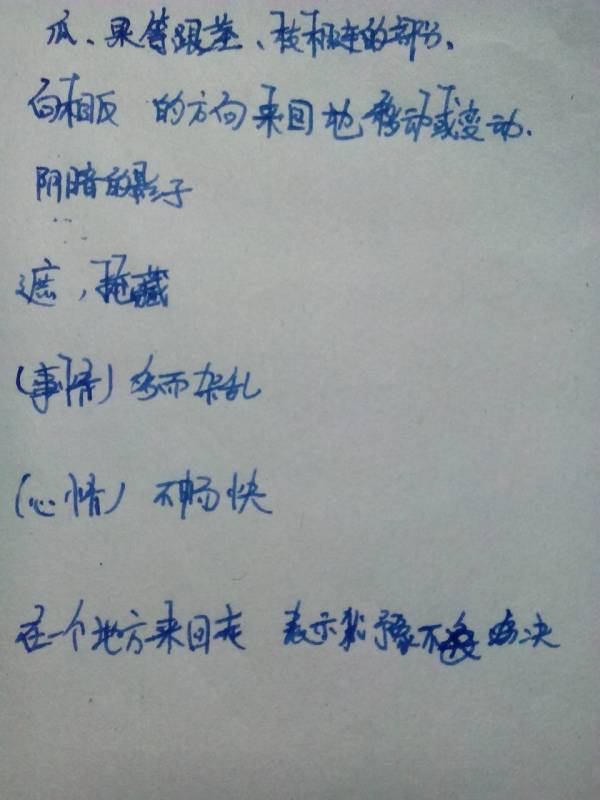 瓜、果等跟茎、枝相连的部分.
向相反 的方向来回地移动或变动.
阴暗的影子
遮,掩藏
(事情)多而杂乱
(心情)不畅快
在一个地方来回走 表示犹豫不决